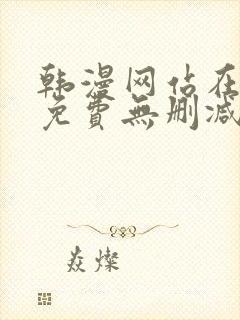 韩漫网站在
免費無删减
焱燦